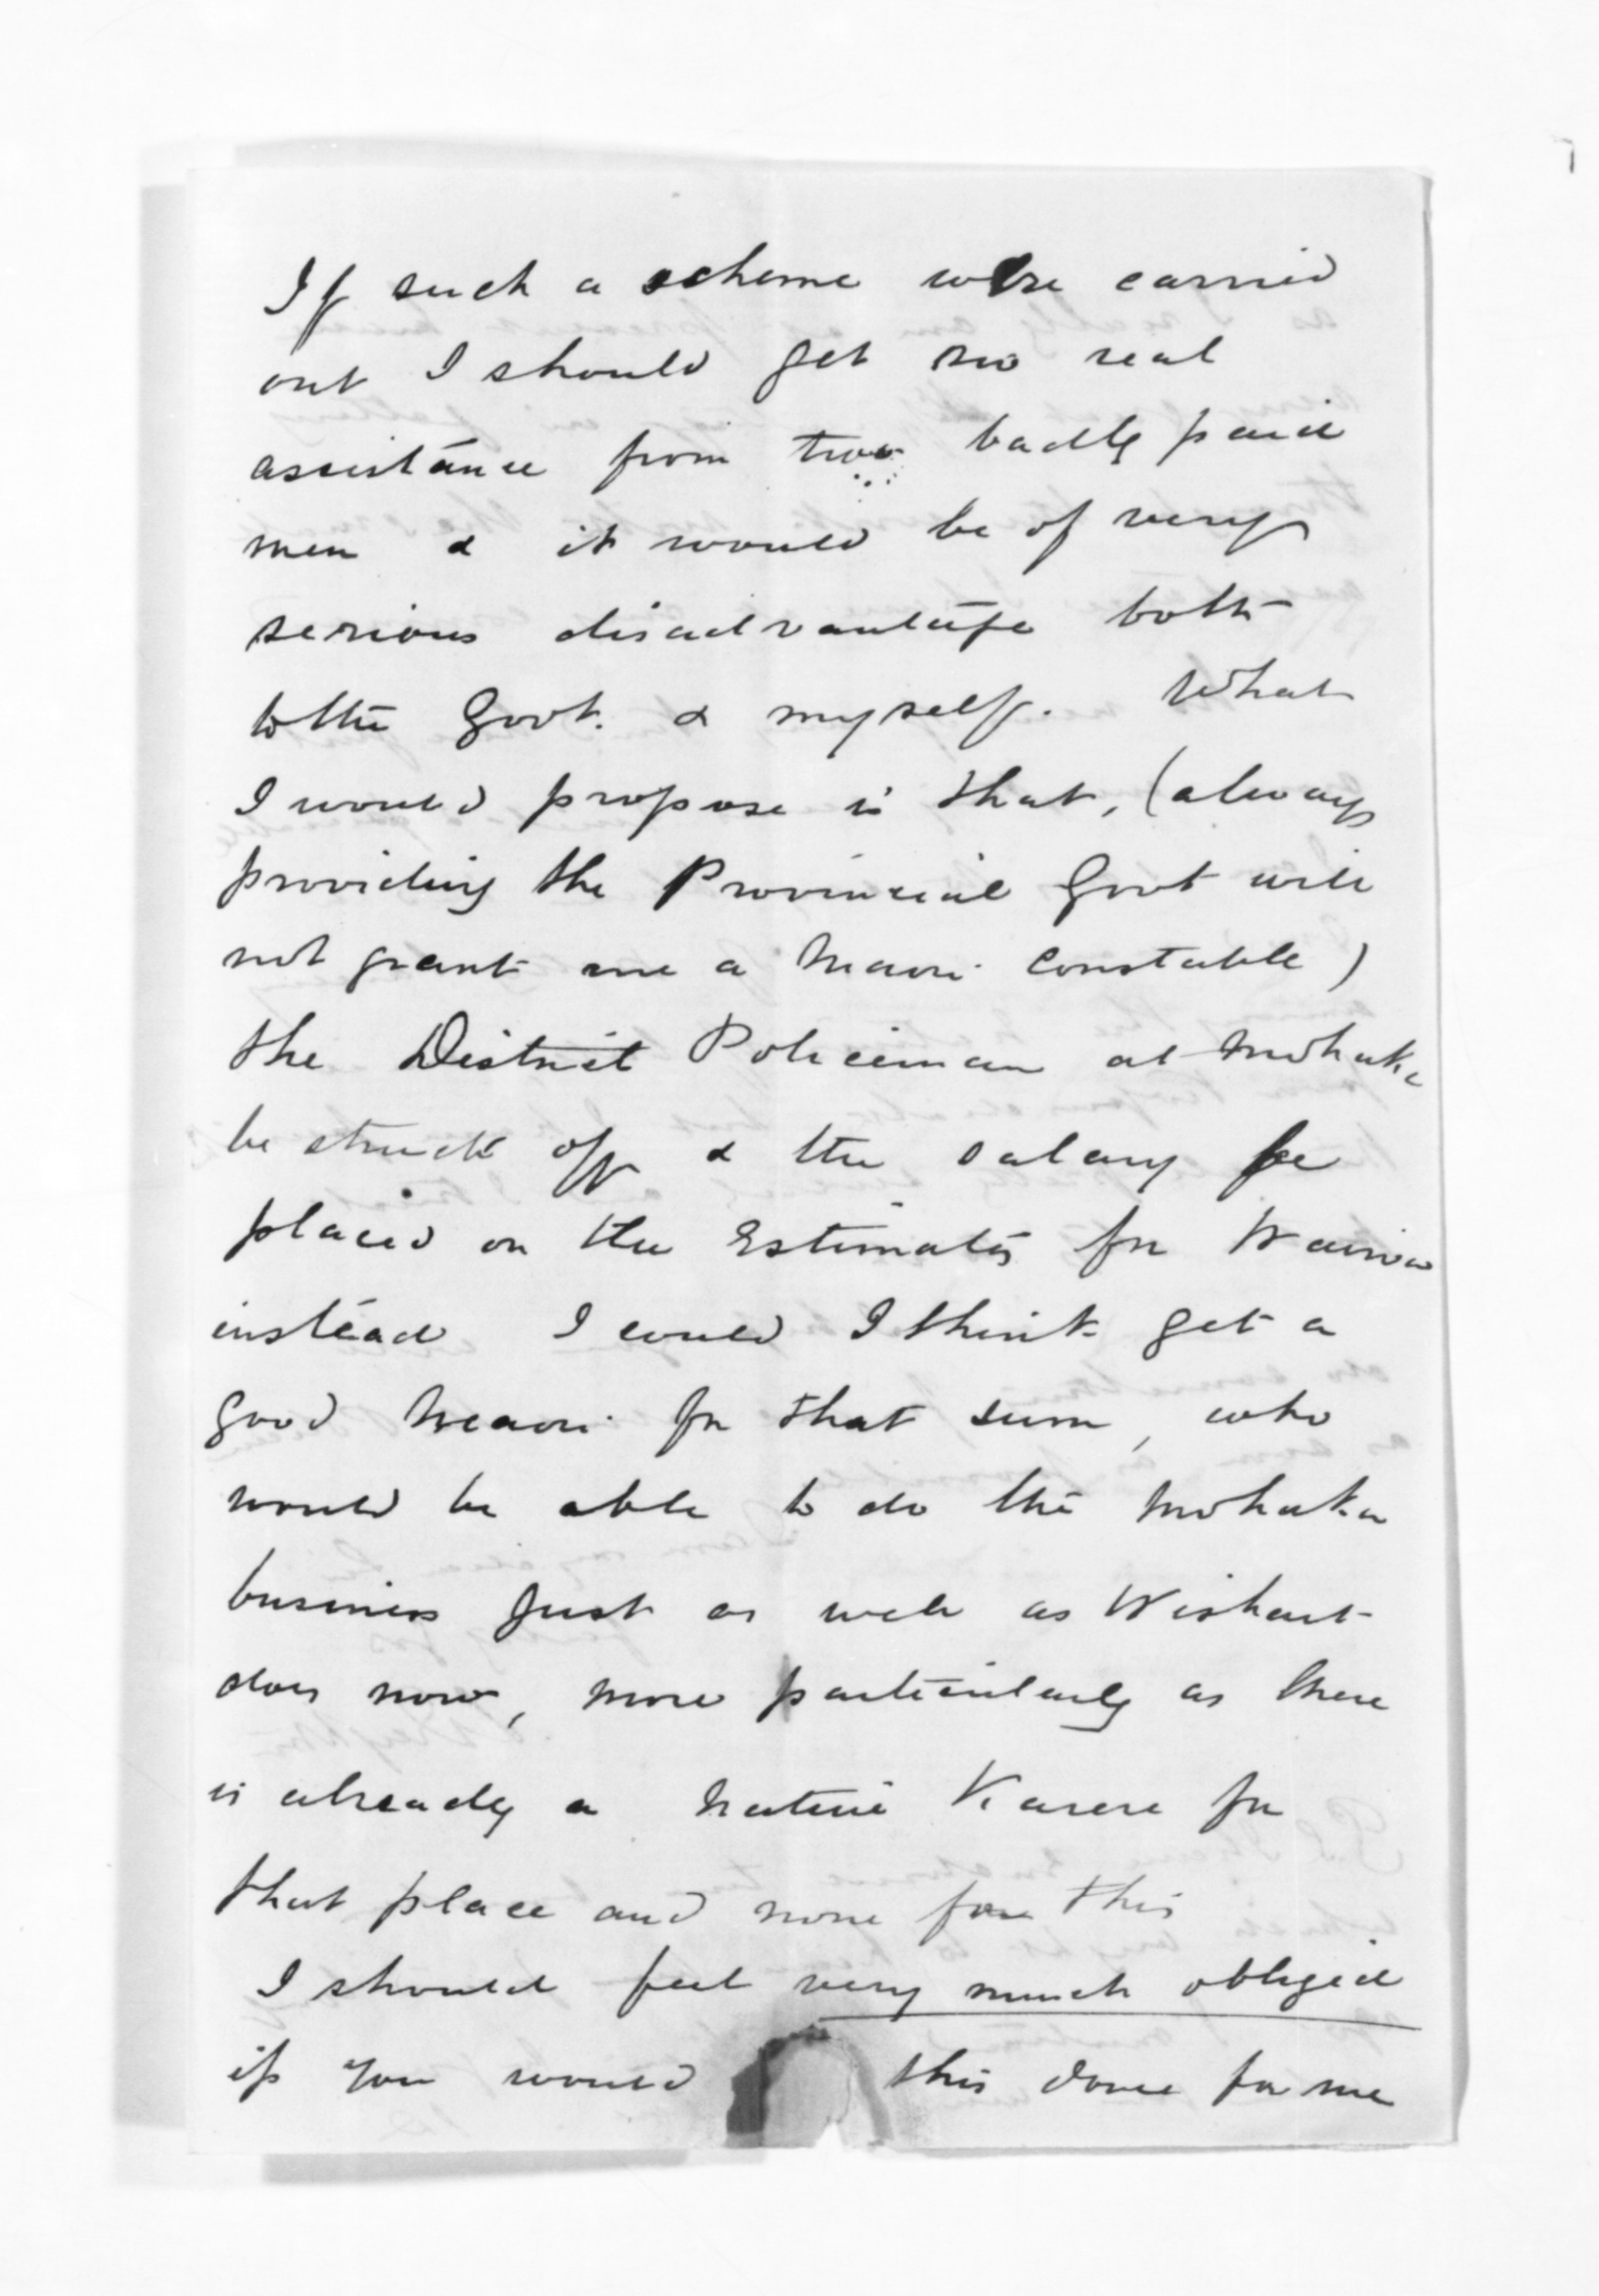 If such a scheme were carried
out I should get no real
assistance from two badly paid
men & it would be of very
serious disadvantage both
to the Govt. & myself. What
I would propose is that, (always
providing the Provincial Govt will
not grant me a Maori Constable)
the District Policeman at Mohaka
be struck off & the salary be
placed on the Estimates for Wairoa
instead I could I think get a
good Maori for that sum, who
would be able to do the Mohaka
business just as well as Wishart
does now, more particularly as there
is already a Native Karere for
that place and none for this
I should feel very much obliged
if you would this done for me